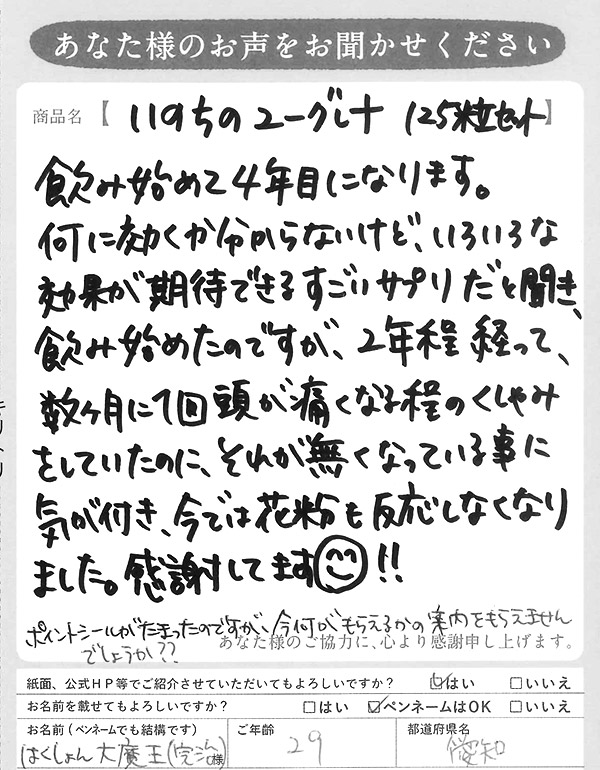 あなた様のお声をお聞かせください
商品名【 いのちのユーグレナ 125粒セット】
飲み始めて4年目になります。
何に効くか分からないけど、いろいろな
効果が期待できるすごいサプリだと聞き、
飲み始めたのですが、2年程経って、
数ヶ月に1回頭が痛くなる程のくしゃみ
をしていたのに、それが無くなっている事に
気が付き、今では花粉も反応しなくなり
ました。感謝してます!!
ポイントシールがたまったのですが、今何がもらえるかの案内をもらえません
でしょうか??
あなた様のご協力に、心より感謝申し上げます。
紙面、公式HP等でご紹介させていただいてもよろしいですか? ☑はい □いいえ
お名前を載せてもよろしいですか? □はい ☑ペンネームはOK □いいえ
お名前(ペンネームでも結構です) ご年齢 都道府県名
はくしょん大魔王(完治)様 29 愛知